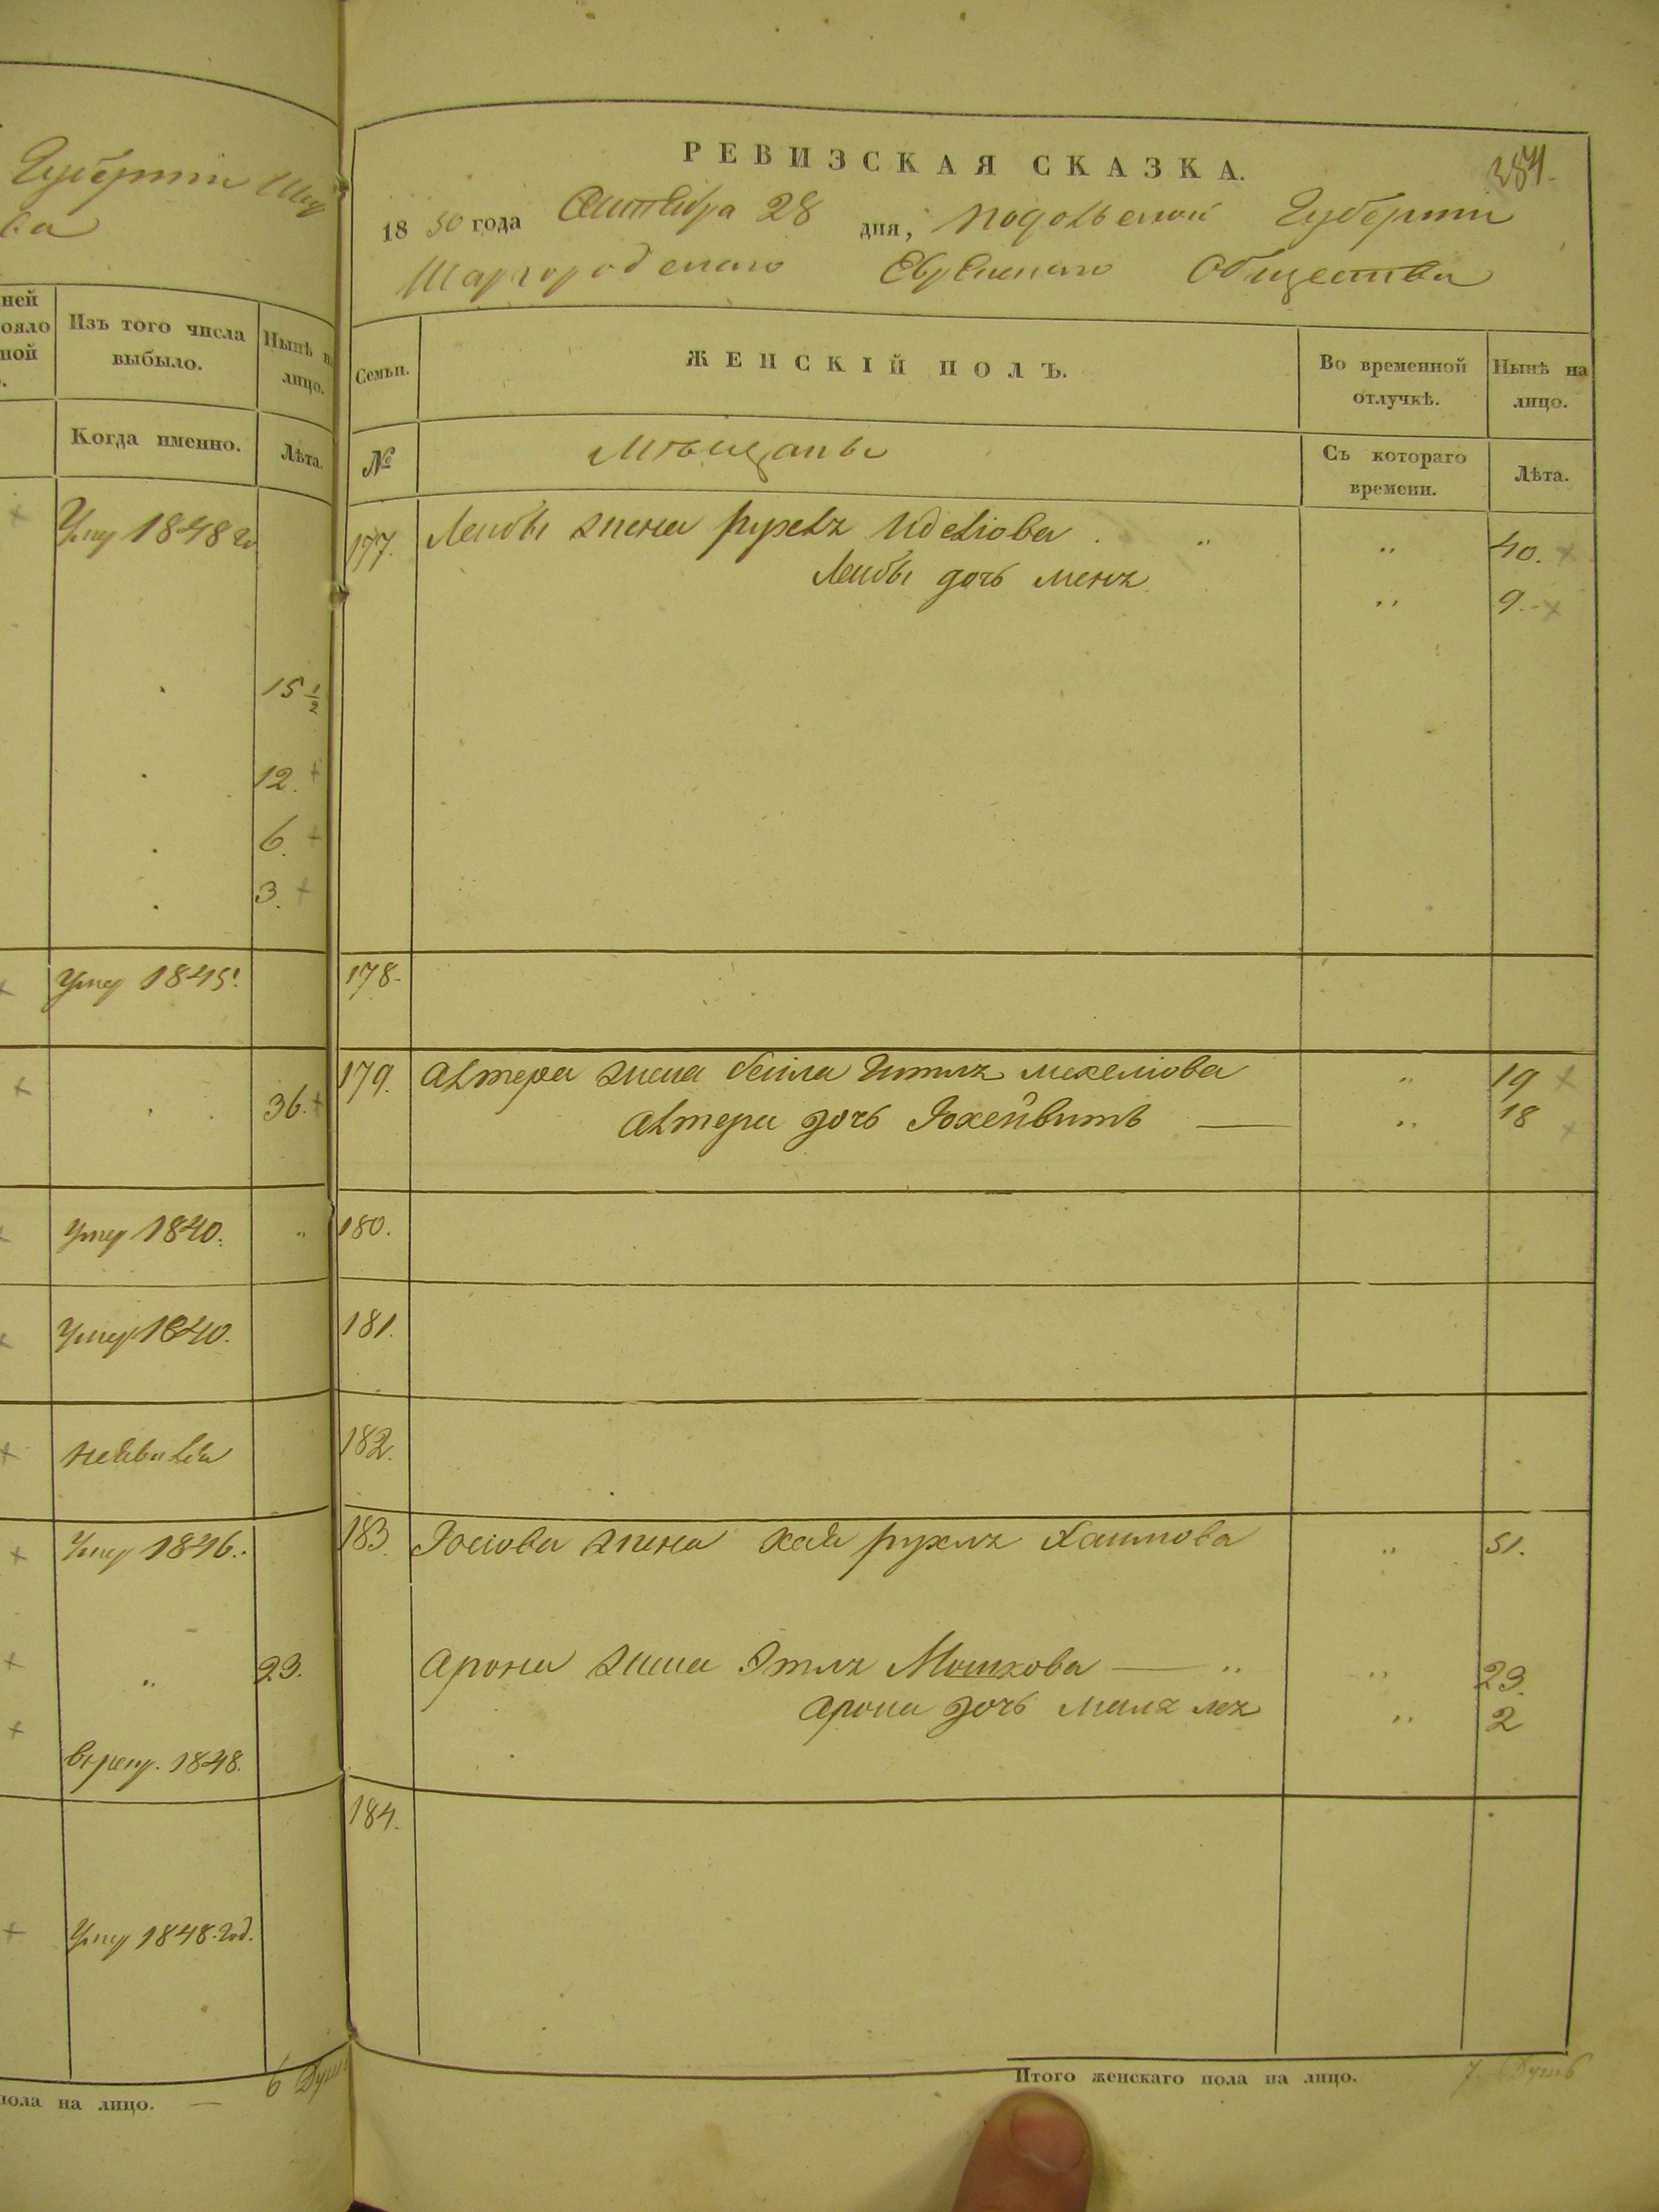 Губерніи Шар
ва
ней
ояло
ной
Изъ того числа
выбыло.
Нынѣ н
лицо.
Когда именно.
Лѣта.
Умер 1848 го
15 1/2
12.
6.
3.
Умер 1845.
36.
Умер 1840.
Умер 1840.
неявился
Умер 1846.
23.
в рекру. 1848.
Умер 1848. год.
6 Душ
пола на лицо. —
РЕВИЗСКАЯ СКАЗКА.
1850 года Сентября 28 дня, Подольской Губерніи
Шаргородскаго Еврейскаго Общества
Семьи.
ЖЕНСКІЙ ПОЛЪ.
Во временной
отлучкѣ.
Нынѣ на
лицо.
№
Мѣщанѣ
Съ котораго
времени.
Лѣта.
177. Лейбы жена Рухля Иделіова " 40.
Лейбы дочь Меня " 9.
178.
179. Альтера жена Бейла Гитля Мехеліова " 19
Альтера дочь Іохейвитъ — " 18
180.
181.
182.
183. Іосіова жена Хая Рухля Хаимова " 51.
Арона жена Этля Мошкова — " 23.
Арона дочь Маля Лея " 2
184.
Итого женскаго пола на лицо. 7. Душъ